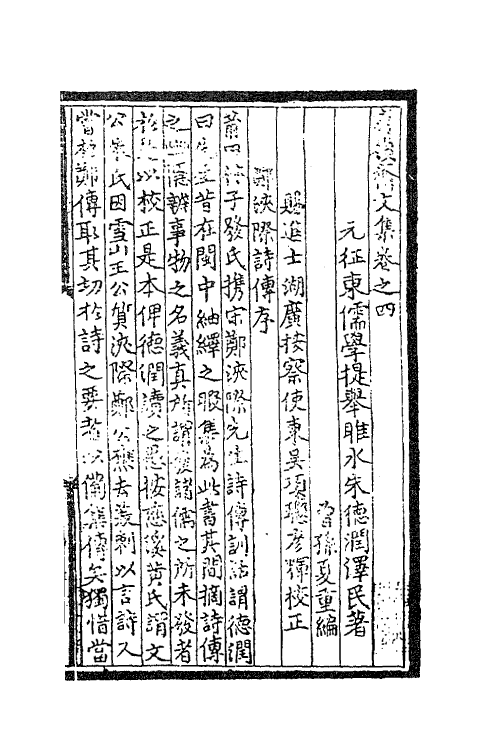 齋文集卷之四
元征東儒學提舉睢水朱德潤澤民著
曾孫夏重編
賜進士湖廣按察使東吳項璁彥輝校正
鄭浹際詩傳序
莆田 子發氏携宋鄭浹際先生詩傳訓詁謂德潤
曰 昔在閩中紬繹之暇集為此書其間摘詩傳
之 辯事物之名義真所謂發諸儒之所未發者
於 以校正是本俾德潤讀之愚按戀溪黄氏謂文
公朱氏因雪山王公質浹際鄭公 去美刺以言詩又
當 鄭傳取其切於詩之要者以備集傳矣獨惜當